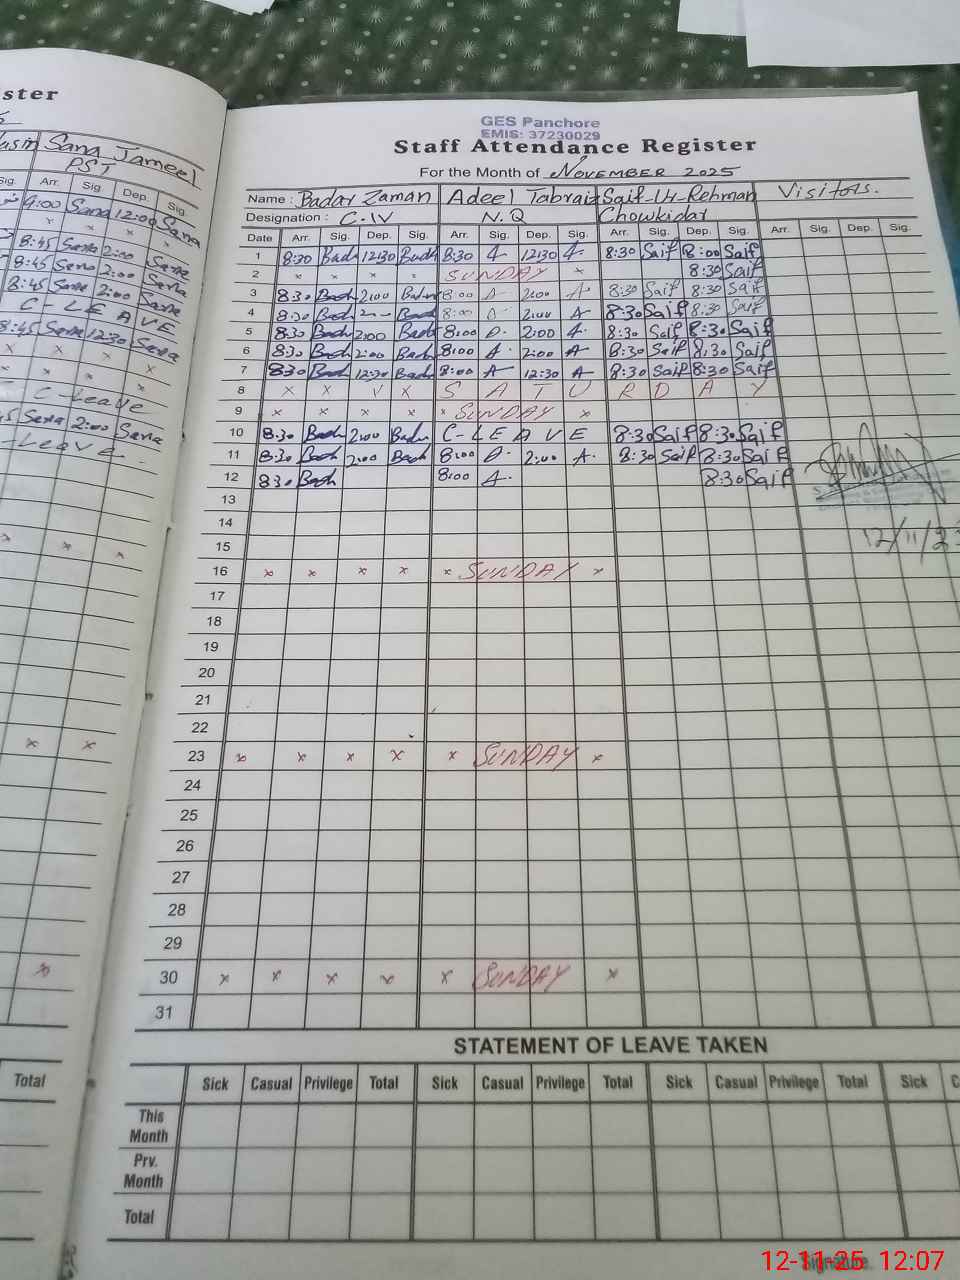 ster
Sana Jameel
PST
Sig. Arr. Sig. Dep. Sig.
9:00 Sana 12:00 Sana
× × × ×
8:45 Sana 2:00 Sana
8:45 Sana 2:00 Sana
8:45 Sana 2:00 Sana
C - L E A V E
8:45 Sana 12:30 Sana
× × × ×
× × × ×
C - Leave
45 Sana 2:00 Sana
- Leave
× × ×
× ×
×
Total
GES Panchore
EMIS: 37230029
Staff Attendance Register
For the Month of NOVEMBER 2025
Name : Badar Zaman Adeel Tabraiz Saif-Ur-Rehman Visitors.
Designation : C.IV N.Q Chowkidar
Date Arr. Sig. Dep. Sig. Arr. Sig. Dep. Sig. Arr. Sig. Dep. Sig. Arr. Sig. Dep. Sig.
1 8:30 Badr 12:30 Badr 8:30 A 12:30 A 8:30 Saif 8:00 Saif
2 × × × × SUNDAY × 8:30 Saif
3 8:30 Badr 2:00 Badar 8:00 A 2:00 A 8:30 Saif 8:30 Saif
4 8:30 Badr 2- Badr 8:00 A 2:00 A 8:30 Saif 8:30 Saif
5 8:30 Badr 2:00 Badr 8:00 A. 2:00 A 8:30 Saif 8:30 Saif
6 8:30 Badr 2:00 Badr 8:00 A. 2:00 A 8:30 Saif 8:30 Saif
7 8:30 Badr 12:30 Badr 8:00 A 12:30 A 8:30 Saif 8:30 Saif
8 × × × × S A T U R D A Y
9 × × × × × SUNDAY ×
10 8:30 Badr 2:00 Badr C - L E A V E 8:30 Saif 8:30 Saif
11 8:30 Badr 2:00 Badr 8:00 A. 2:00 A. 8:30 Saif 8:30 Saif
12 8:30 Badr 8:00 A. 8:30 Saif
13
14
15
12/11/25
16 × × × × × SUNDAY ×
17
18
19
20
21
22
23 × × × × × SUNDAY ×
24
25
26
27
28
29
30 × × × × × SUNDAY ×
31
STATEMENT OF LEAVE TAKEN
Sick Casual Privilege Total Sick Casual Privilege Total Sick Casual Privilege Total Sick C
This Month
Prv. Month
Total
Signature
12-11-25 12:07